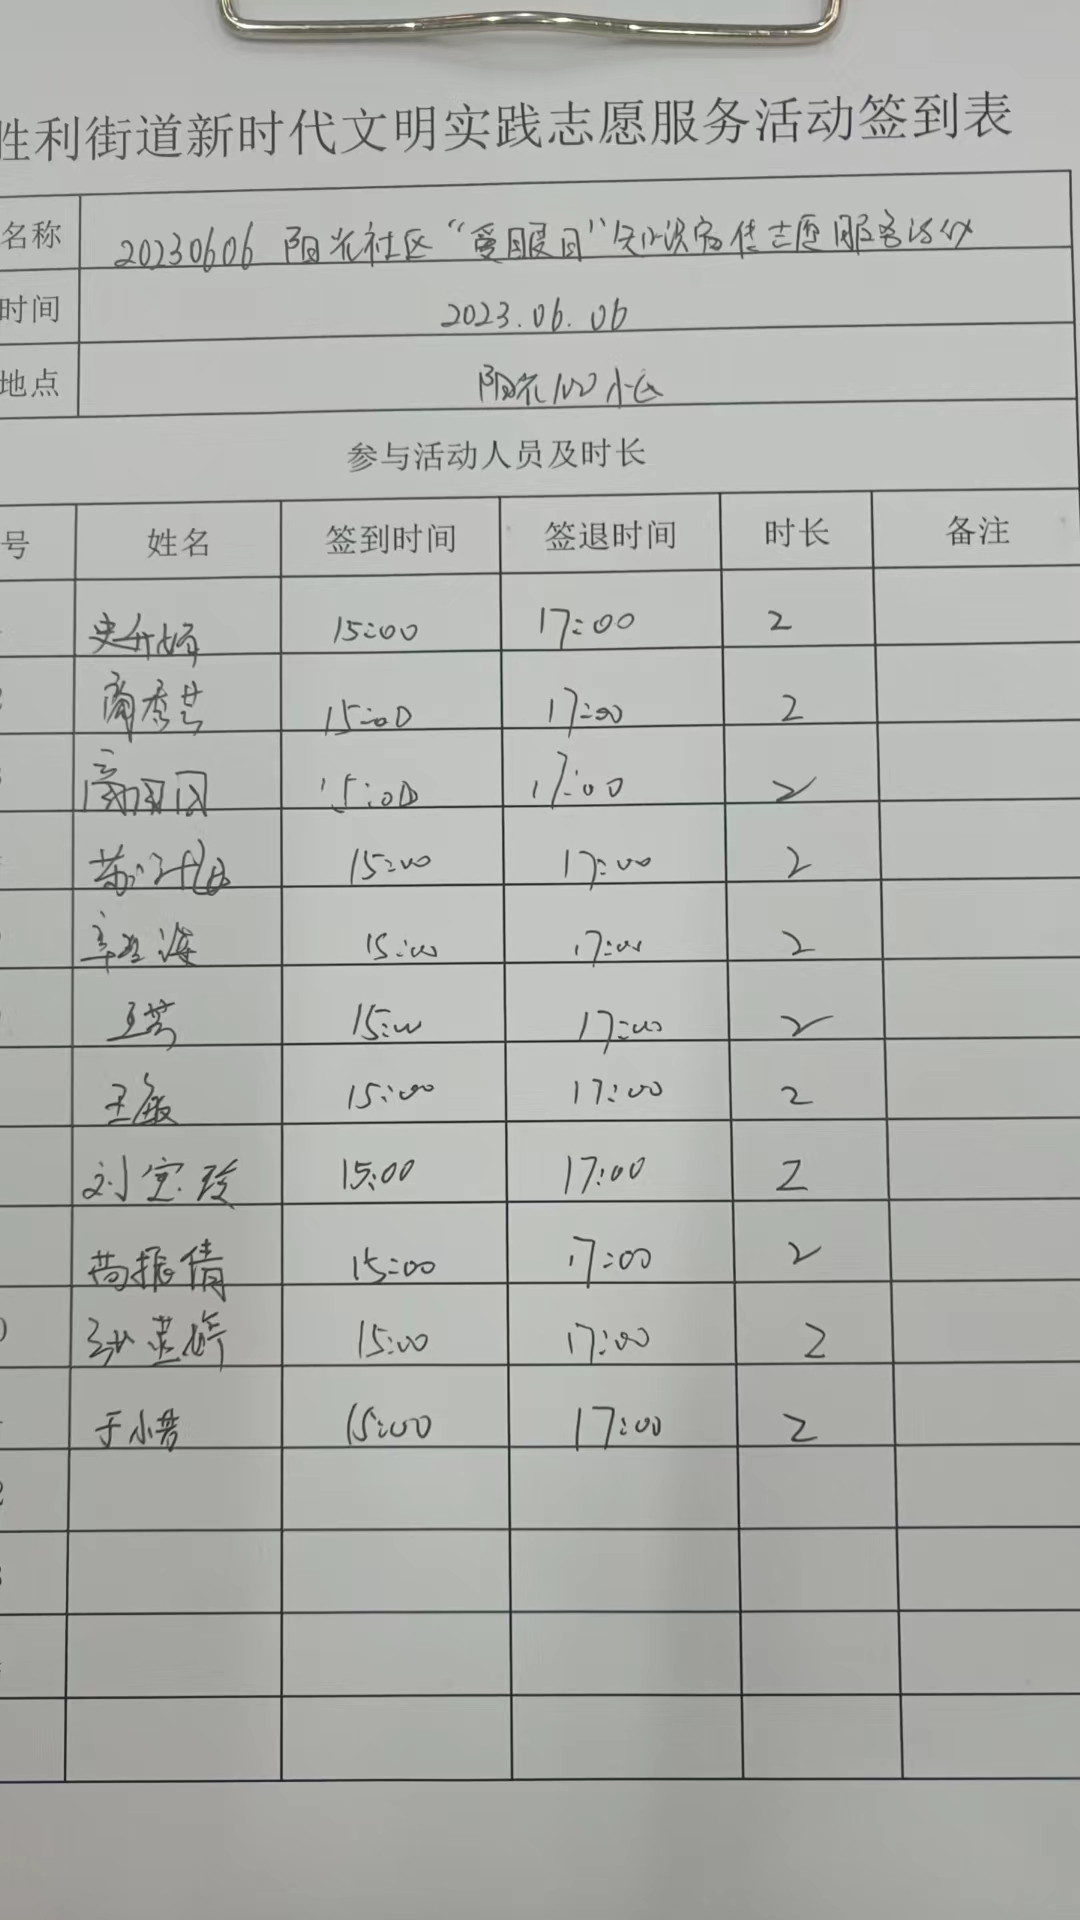 胜利街道新时代文明实践志愿服务活动签到表
名称 20230606 阳光社区“爱眼日”知识宣传志愿服务活动
时间 2023.06.06
地点 阳光100小区
参与活动人员及时长
号 姓名 签到时间 签退时间 时长 备注
15:00 17:00 2
2 15:00 17:00 2
3 15:00 17:00 2
15:00 17:00 2
15:00 17:00 2
王芳 15:00 17:00 2
王敏 15:00 17:00 2
刘宝玲 15:00 17:00 2
振倩 15:00 17:00 2
0 15:00 17:00 2
于小普 15:00 17:00 2
2
3